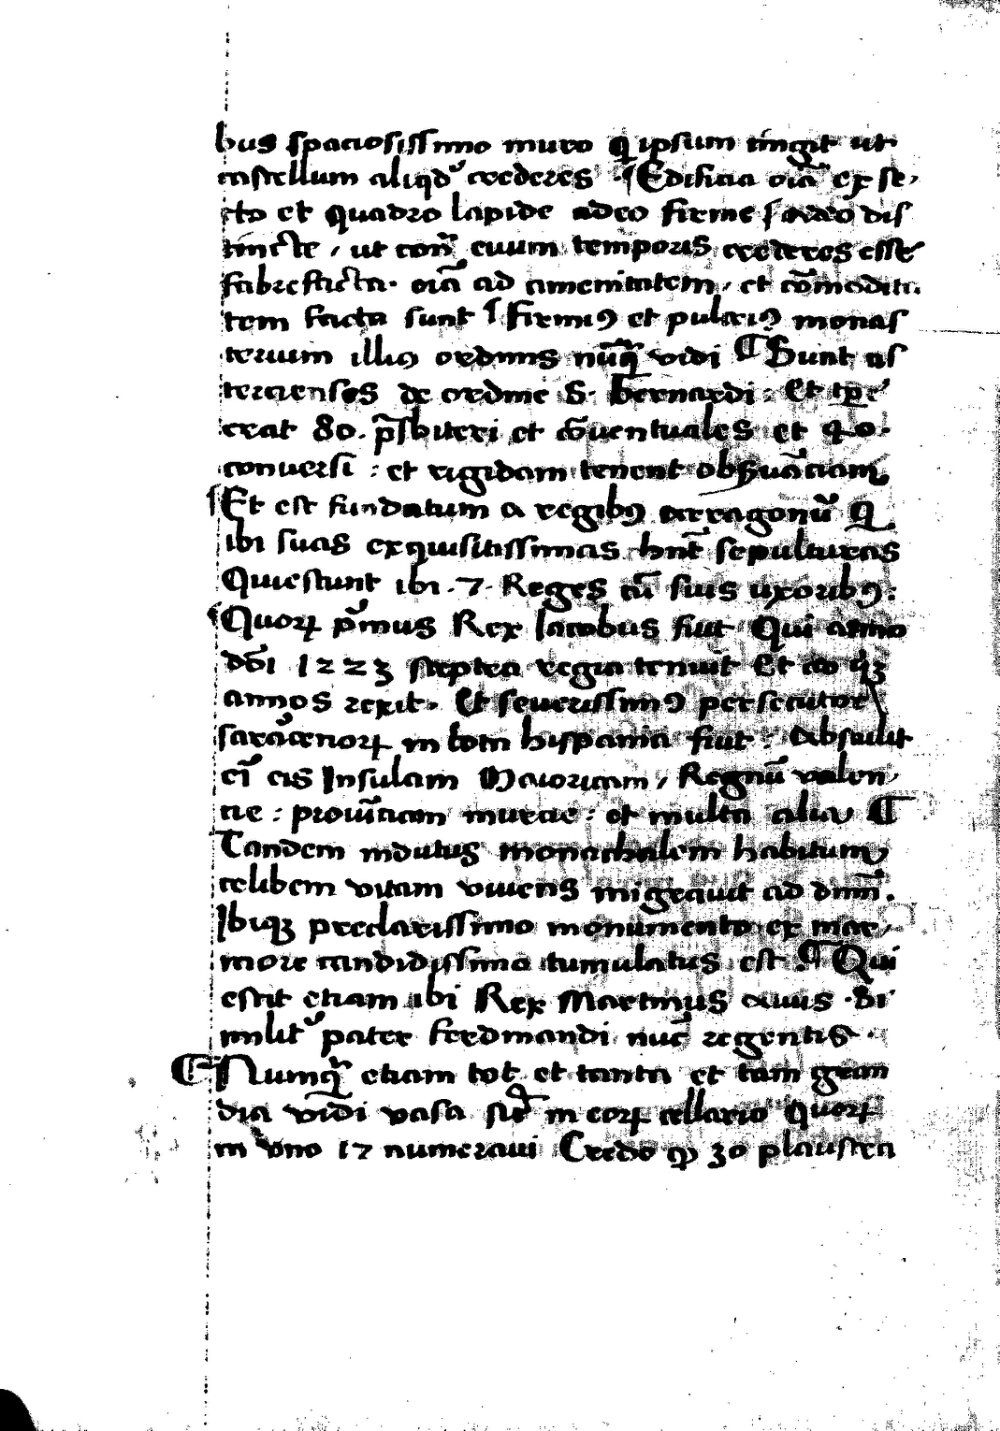 bus spaciosissimo muro q̃ ipsum cingit ut
castellum aliqđ crederes · Edificia oĩa ex se,
cto et quadro lapide adeo firme / adeo dis
tincte , ut coñ euum temporis crederes esse
fabrefacta · oĩa ad amenitatem , et cõmodita
tem facta sunt Firmiꝰ et pulcriꝰ monas
terium illiꝰ ordinis nũq̃ vidi ¶ Sunt cis
tercienses de ordine S. Bernardi : Et tp̃e
erat 80. p̃sbiteri et cõuentuales et 40.
conuersi : et rigidam tenent obs̃uãciam
Et est fundatum a regibꝰ arragonũ Q̃
ibi suas exquisitissimas hñt sepulturas
Quiescunt ibi · 7 · Reges cũ suis uxoribꝰ :
Quoꝝ p̃mus Rex Iacobus fuit Qui anno
dñi 1223 sceptra regia tenuit Et eo
annos rexit · Et seuerissimꝰ persecutor
saracenoꝝ in tota hispania fuit : Abstulit
eñ eis Insulam Maioricam , Regnũ valen,
tie : prouĩciam murcie : et multa alia ¶
Tandem indutus monachalem habitum
celibem vitam viuens migrauit ad dnm̃.
Ibiqꝫ preclarissimo monumento ex mar,
more candidissimo tumulatus est ¶ Qui
escit etiam ibi Rex Martinus auus · Si
milit᷑ pater ferdinandi nuc̃ regentis ·
¶ Numq̃ etiam tot et tanta et tam gran
dia vidi vasa sic̃ in eoꝝ cellario quoꝝ
in vno 17 numeraui Credo ꝙ 30 plaustra